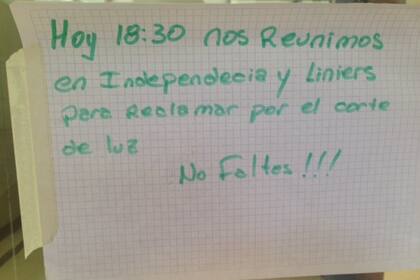 Hoy 18:30 nos Reunimos
en Independecia y Liniers
para Reclamar por el corte
de luz
No Faltes!!!